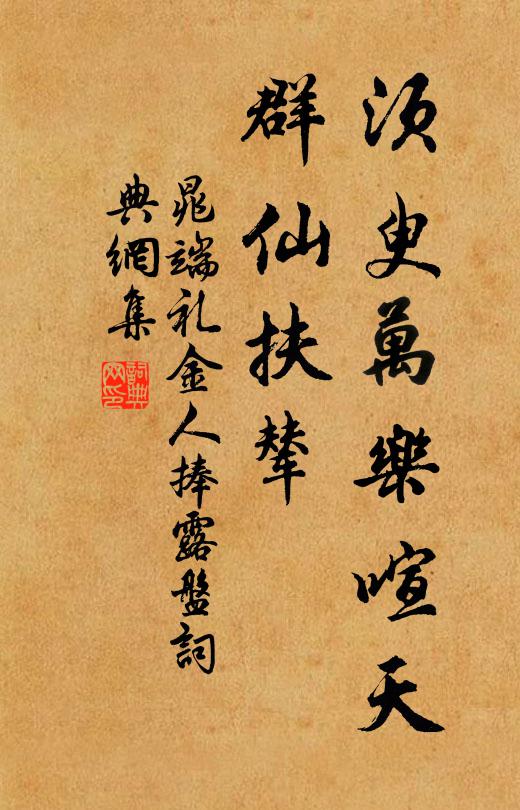 須臾萬樂喧天
群仙扶輦
晁端礼金人捧露盤詞
典網集
詞典網印